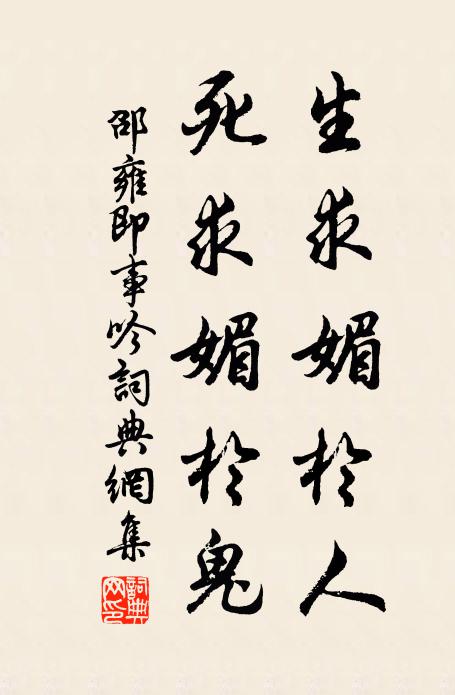 生求媚於人
死求媚於鬼
邵雍即事吟詞典網集
詞典網印